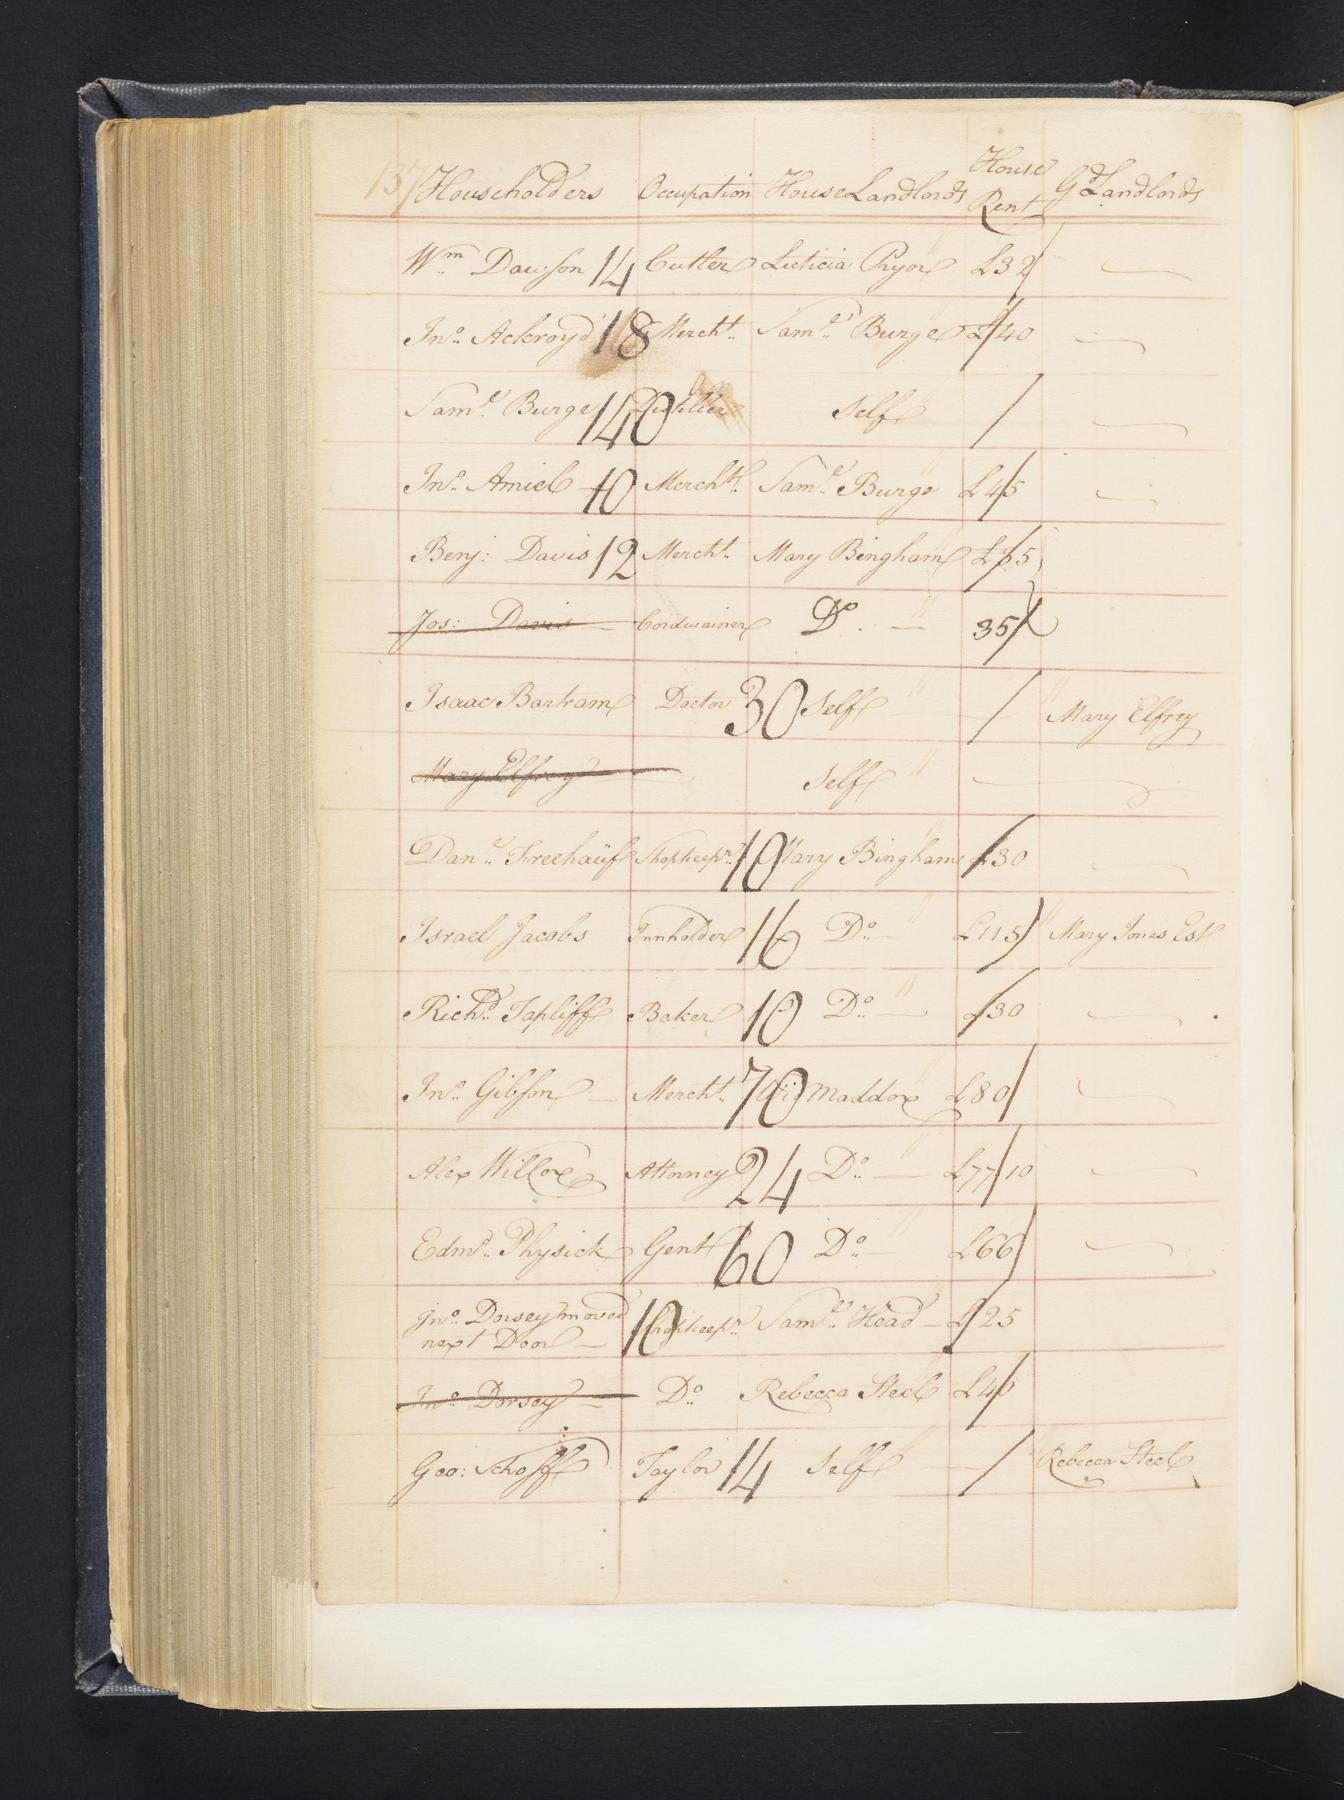 137 Householders Occupation House Landlords House Rent Gd Landlords
Wm Dawson 14 Cutler Luticia Pryor £32
Jno. Ackroyd 18 Mercht. Saml. Burge £40
Saml. Burge 140 Distiller Self
Jno. Amiel 10 Mercht. Saml. Burge £45
Benj: Davis 12 Mercht. Mary Bingham £35
Jos: Davis Cordwainer Do. 35
Isaac Bartram Doctor 30 Self Mary Elfrey
Mary Elfrey Self
Danl. Freehauf Shopkeepr. 10 Mary Bingham £30
Israel Jacobs Innholder 16 Do. £115 Mary Jones Est
Richd. Tapliff Baker 10 Do. £30
Jno. Gibson Mercht. 70 Maddox £80
Alex Willcox Attorney 24 Do. £77 10
Edmd. Physick Gent 60 Do. £66
Jno. Dorsey moved
next Door 10 Shopkeepr. Saml. Head £25
Jno. Dorsey Do. Rebecca Steel
Geo: Schoff Taylor 14 Self Rebecca Steel